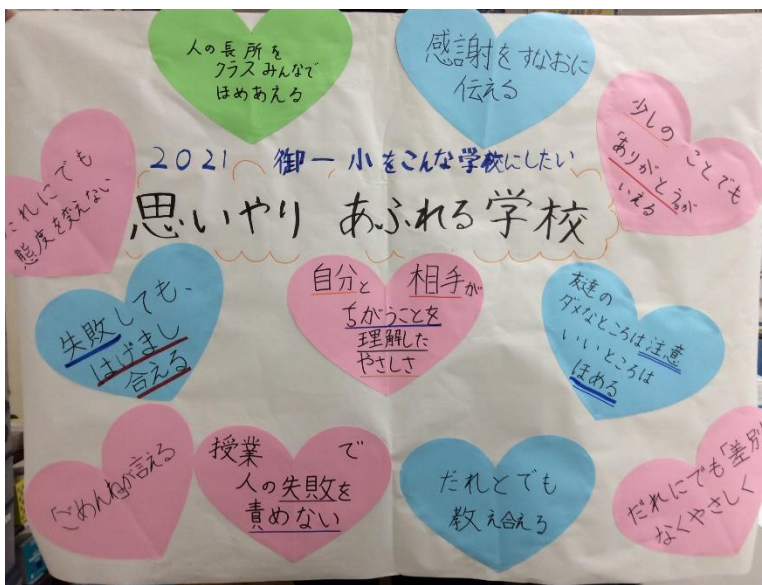 人の長所を
クラスみんなで
ほめあえる
感謝をすなおに
伝える
少しのことでも
「ありがとう」が
いえる
2021 御一小をこんな学校にしたい
思いやり あふれる学校
だれにでも
態度を変えない
失敗しても、
はげまし
合える
自分と相手が
ちがうことを
理解した
やさしさ
友達の
ダメなところは注意
いいところは
ほめる
「ごめんね」が言える
授業で
人の失敗を
責めない
だれとでも
教え合える
だれにでも「差別」
なくやさしく